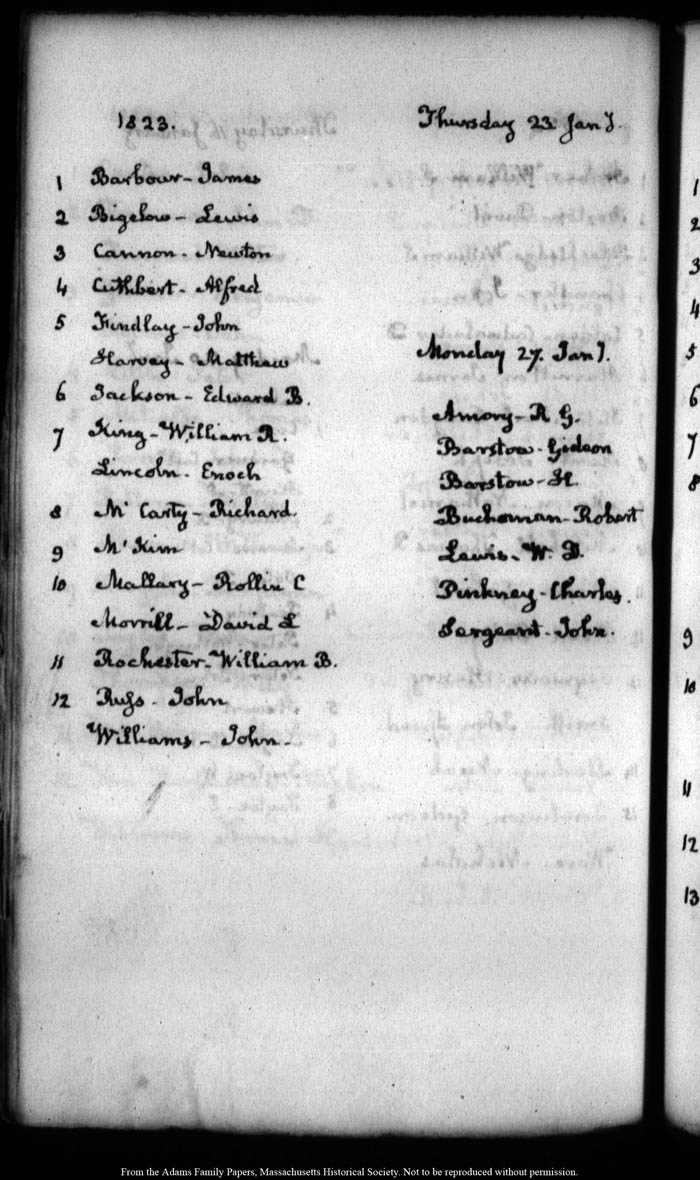 1823.
Thursday 23 Jany.
1 Barbour - James
2 Bigelow - Lewis
3 Cannon - Newton
4 Cuthbert - Alfred
5 Findlay - John
Harvey - Matthew
6 Jackson - Edward B.
7 King - William R.
Lincoln - Enoch
8 Mc Carty - Richard.
9 Mc Kim
10 Mallary - Rollin C
Morrill - David L
11 Rochester - William B.
12 Rugs - John
Williams - John -
Monday 27. Jany.
Amory - R G.
Barstow - Gideon
Barstow - H.
Buchanan - Robert
Lewis - W. D.
Pinkney - Charles.
Sergeant - John.
1
2
3
4
5
6
7
8
9
10
11
12
13
From the Adams Family Papers, Massachusetts Historical Society. Not to be reproduced without permission.